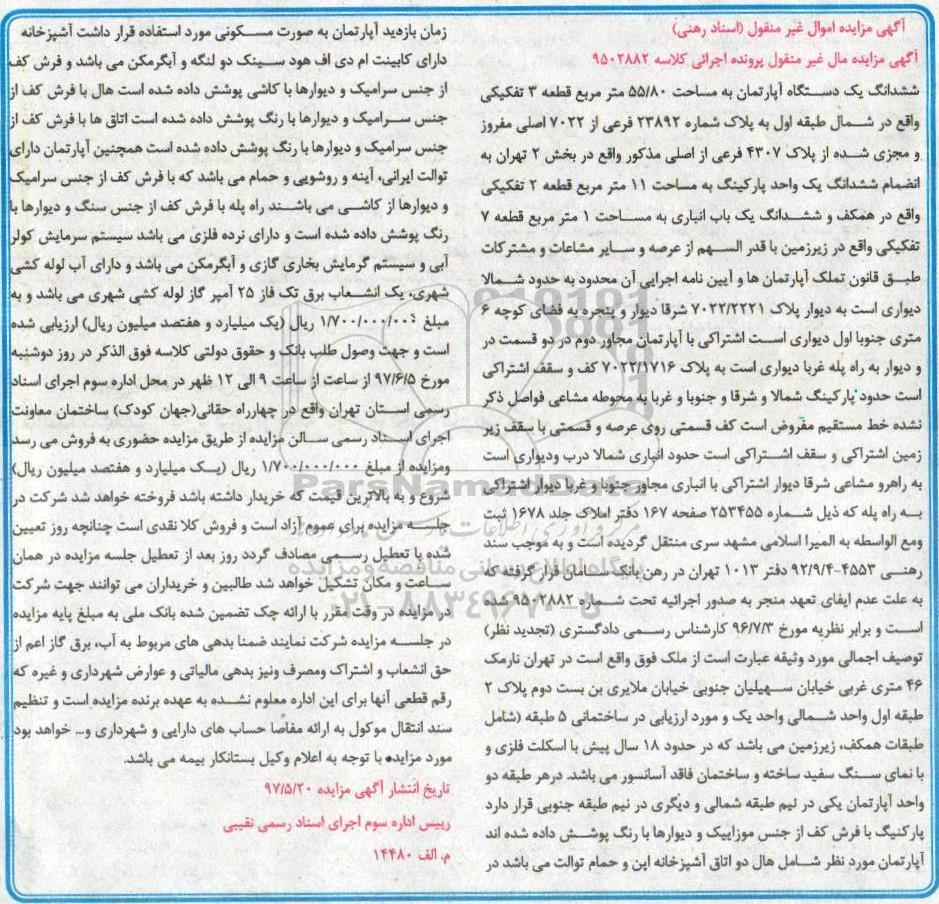 آگهی مزایده اموال غیر منقول (اسناد رهنی)
آگهی مزایده مال غیر منقول پرونده اجرائی کلاسه ۹۵۰۲۸۸۲
ششدانگ یک دستگاه آپارتمان به مساحت ۵۵/۸۰ متر مربع قطعه ۳ تفکیکی
واقع در شمال طبقه اول به پلاک شماره ۲۳۸۹۲ فرعی از ۷۰۲۲ اصلی مفروز
و مجزی شده از پلاک ۴۳۰۷ فرعی از اصلی مذکور واقع در بخش ۲ تهران به
انضمام ششدانگ یک واحد پارکینگ به مساحت ۱۱ متر مربع قطعه ۲ تفکیکی
واقع در همکف و ششدانگ یک باب انباری به مساحت ۱ متر مربع قطعه ۷
تفکیکی واقع در زیرزمین با قدر السهم از عرصه و سایر مشاعات و مشترکات
طبق قانون تملک آپارتمان ها و آیین نامه اجرایی آن محدود به حدود شمالا
دیواری است به دیوار پلاک ۷۰۲۲/۲۲۲۱ شرقا دیوار و پنجره به فضای کوچه ۶
متری جنوبا اول دیواری است اشتراکی با آپارتمان مجاور دوم در دو قسمت در
و دیوار به راه پله غربا دیواری است به پلاک ۷۰۲۲/۱۷۱۶ کف و سقف اشتراکی
است حدود پارکینگ شمالا و شرقا و جنوبا و غربا به محوطه مشاعی فواصل ذکر
نشده خط مستقیم مفروض است کف قسمتی روی عرصه و قسمتی با سقف زیر
زمین اشتراکی و سقف اشتراکی است حدود انباری شمالا درب ودیواری است
به راهرو مشاعی شرقا دیوار اشتراکی با انباری مجاور جنوبا و غربا دیوار اشتراکی
به راه پله که ذیل شماره ۲۵۳۴۵۵ صفحه ۱۶۷ دفتر املاک جلد ۱۶۷۸ ثبت
ومع الواسطه به المیرا اسلامی مشهد سری منتقل گردیده است و به موجب سند
رهنی ۴۵۵۳-۹۲/۹/۴ دفتر ۱۰۱۳ تهران در رهن بانک سامان قرار گرفته که
به علت عدم ایفای تعهد منجر به صدور اجرائیه تحت شماره ۹۵۰۲۸۸۲ شده
است و برابر نظریه مورخ ۹۶/۷/۳ کارشناس رسمی دادگستری (تجدید نظر)
توصیف اجمالی مورد وثیقه عبارت است از ملک فوق واقع است در تهران نارمک
۴۶ متری غربی خیابان سهیلیان جنوبی خیابان ملایری بن بست دوم پلاک ۲
طبقه اول واحد شمالی واحد یک و مورد ارزیابی در ساختمانی ۵ طبقه (شامل
طبقات همکف، زیرزمین می باشد که در حدود ۱۸ سال پیش با اسکلت فلزی و
با نمای سنگ سفید ساخته و ساختمان فاقد آسانسور می باشد. درهر طبقه دو
واحد آپارتمان یکی در نیم طبقه شمالی و دیگری در نیم طبقه جنوبی قرار دارد
پارکنیگ با فرش کف از جنس موزاییک و دیوارها با رنگ پوشش داده شده اند
آپارتمان مورد نظر شامل هال دو اتاق آشپزخانه اپن و حمام توالت می باشد در
زمان بازدید آپارتمان به صورت مسکونی مورد استفاده قرار داشت آشپزخانه
دارای کابینت ام دی اف هود سینک دو لنگه و آبگرمکن می باشد و فرش کف
از جنس سرامیک و دیوارها با کاشی پوشش داده شده است هال با فرش کف از
جنس سرامیک و دیوارها با رنگ پوشش داده شده است اتاق ها با فرش کف از
جنس سرامیک و دیوارها با رنگ پوشش داده شده است همچنین آپارتمان دارای
توالت ایرانی، آینه و روشویی و حمام می باشد که با فرش کف از جنس سرامیک
و دیوارها از کاشی می باشند راه پله با فرش کف از جنس سنگ و دیوارها با
رنگ پوشش داده شده است و دارای نرده فلزی می باشد سیستم سرمایش کولر
آبی و سیستم گرمایش بخاری گازی و آبگرمکن می باشد و دارای آب لوله کشی
شهری، یک انشعاب برق تک فاز ۲۵ آمپر گاز لوله کشی شهری می باشد و به
مبلغ ۱/۷۰۰/۰۰۰/۰۰۰ ریال (یک میلیارد و هفتصد میلیون ریال) ارزیابی شده
است و جهت وصول طلب بانک و حقوق دولتی کلاسه فوق الذکر در روز دوشنبه
مورخ ۹۷/۶/۵ از ساعت از ساعت ۹ الی ۱۲ ظهر در محل اداره سوم اجرای اسناد
رسمی استان تهران واقع در چهارراه حقانی(جهان کودک) ساختمان معاونت
اجرای اسناد رسمی سالن مزایده از طریق مزایده حضوری به فروش می رسد
ومزایده از مبلغ ۱/۷۰۰/۰۰۰/۰۰۰ ریال (یک میلیارد و هفتصد میلیون ریال)
شروع و به بالاترین قیمت که خریدار داشته باشد فروخته خواهد شد شرکت در
جلسه مزایده برای عموم آزاد است و فروش کلا نقدی است چنانچه روز تعیین
شده با تعطیل رسمی مصادف گردد روز بعد از تعطیل جلسه مزایده در همان
ساعت و مکان تشکیل خواهد شد طالبین و خریداران می توانند جهت شرکت
در مزایده در وقت مقرر با ارائه چک تضمین شده بانک ملی به مبلغ پایه مزایده
در جلسه مزایده شرکت نمایند ضمنا بدهی های مربوط به آب، برق گاز اعم از
حق انشعاب و اشتراک ومصرف ونیز بدهی مالیاتی و عوارض شهرداری و غیره که
رقم قطعی آنها برای این اداره معلوم نشده به عهده برنده مزایده است و تنظیم
سند انتقال موکول به ارائه مفاصا حساب های دارایی و شهرداری و... خواهد بود
مورد مزایده با توجه به اعلام وکیل بستانکار بیمه می باشد.
تاریخ انتشار آگهی مزایده ۹۷/۵/۲۰
رییس اداره سوم اجرای اسناد رسمی نقیبی
م. الف ۱۴۴۸۰
ParsNamadData
پایگاه اطلاع رسانی مناقصه و مزایده
۰۲۱-۸۸۳۴۹۶۷۰-۵